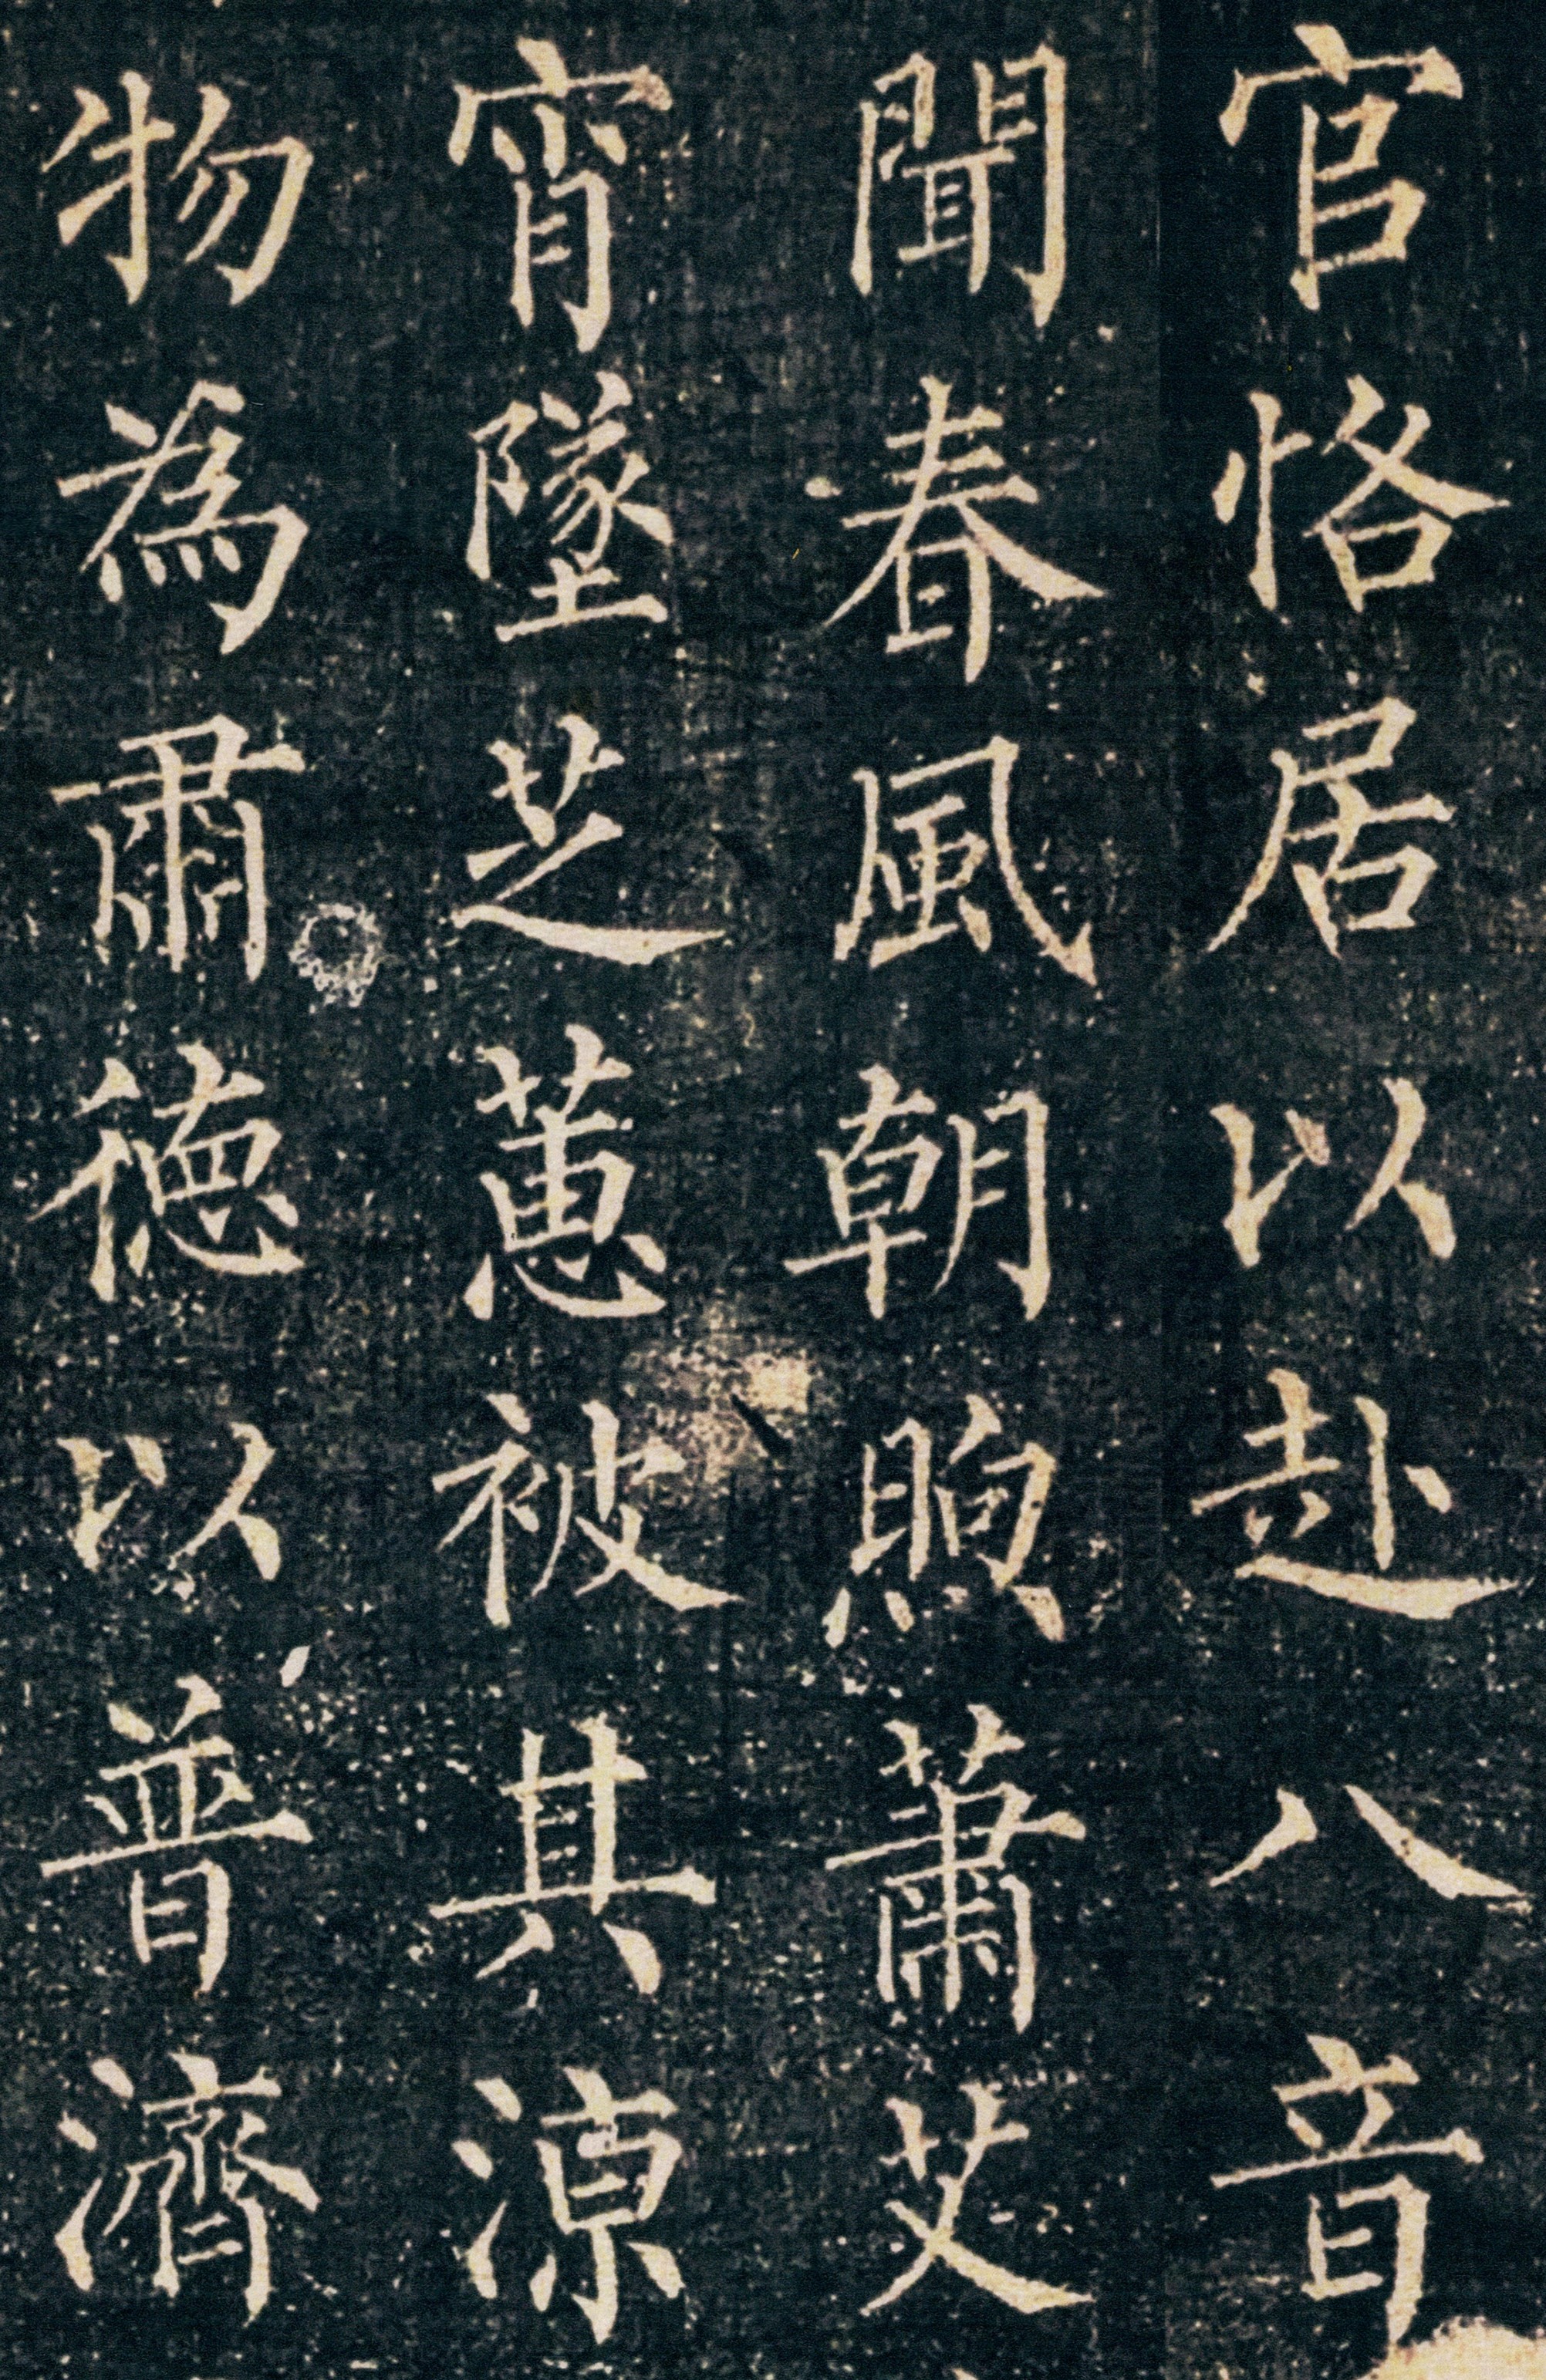 官恪居以赴八音
聞春風朝煦蕭艾
宵墜芝蕙被其涼
物為肅德以普濟